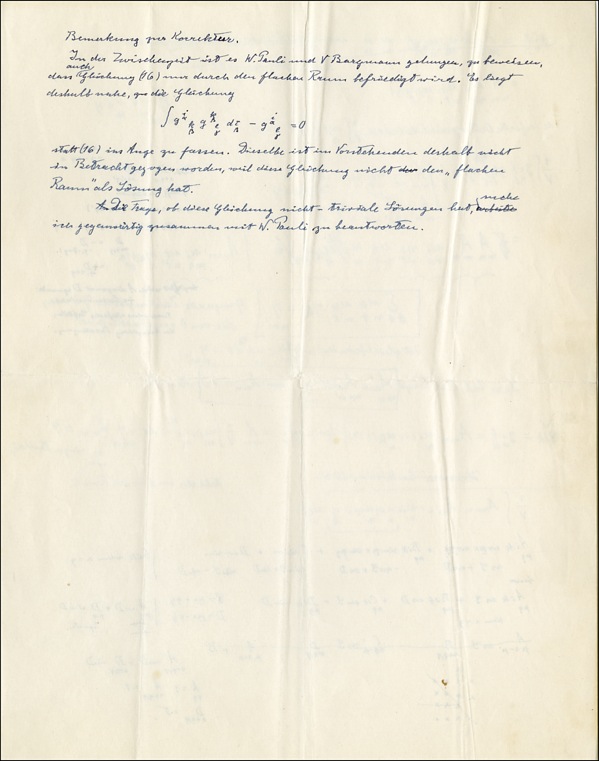 Bemerkung zur Korrektur.
In der Zwischenzeit ist es W. Pauli und V Bargmann gelungen, zu beweisen,
auch
dass Gleichung (16) nur durch den flachen Raum befriedigt wird. Es liegt
deshalb nahe, die Gleichung
= 0
statt (16) ins Auge zu fassen. Dieselbe ist im Vorstehenden deshalb nicht
in Betracht gezogen worden, weil diese Gleichung nicht den „flachen
Raum" als Lösung hat.
Die Frage, ob diese Gleichung nicht-triviale Lösungen hat, suche
ich gegenwärtig zusammen mit W. Pauli zu beantworten.